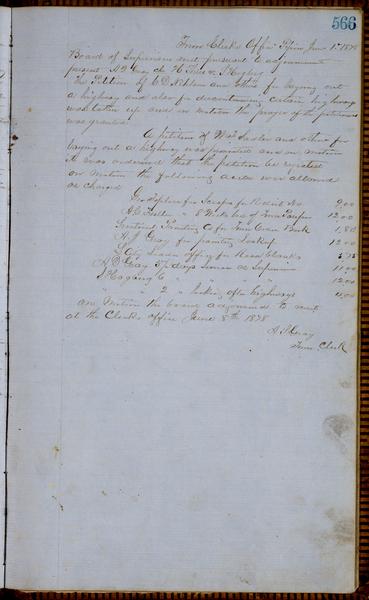 566
Town Clerks Office Pepin June 1st 1878
Board of Supervisors met pursuant to adjournment
present A D Gay ch H
The Petition of and others for laying out
a highway and also for discontinuing certain highway
was taken up and on motion the prayer of the petitioners
was granted
A petition of Wm and others for
laying out a highway was presented and on motion
it was ordered that the petition be rejected
on motion the following accts were allowed
as charged
for Scraper for Road No 9.00
A C 8 12.00
Printing Co for Town Order Book 1.80
A J Gray for painting Lockup 12.00
office for Road blanks
A D Gay 5½ days services as Supervisor 11.00
6 " " " " 12.00
" " 2 " looking after highways 4.00
on motion the board adjourned to meet
at the Clerks office June 8th 1878
A J Gray
Town Clerk